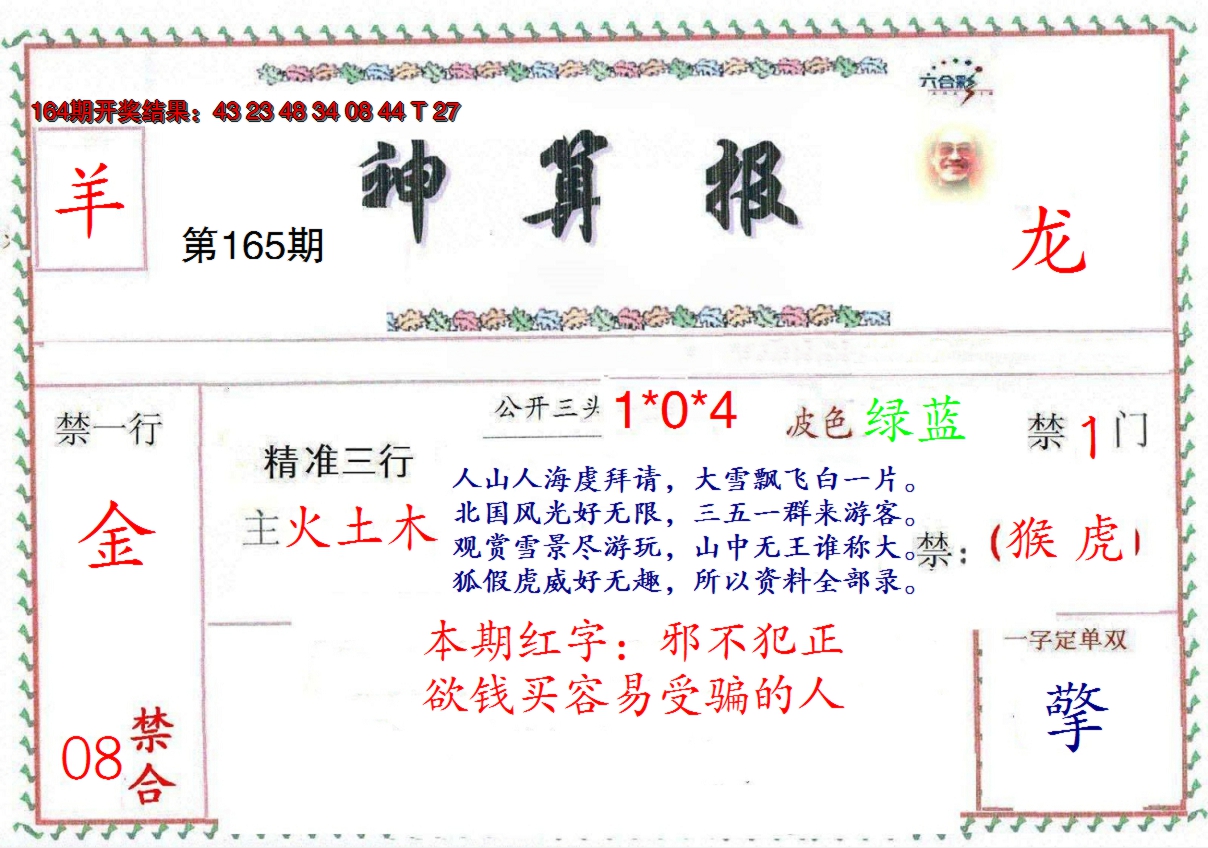 六合彩
164期开奖结果：43 23 48 34 08 44 T 27
神算报
羊
第165期
龙
公开三头 1*0*4
波色 绿蓝
禁1门
禁一行
金
精准三行
主火土木
人山人海虔拜请，大雪飘飞白一片。
北国风光好无限，三五一群来游客。
观赏雪景尽游玩，山中无王谁称大。
狐假虎威好无趣，所以资料全部录。
禁：（猴 虎）
本期红字：邪不犯正
欲钱买容易受骗的人
一字定单双
擎
08
禁合